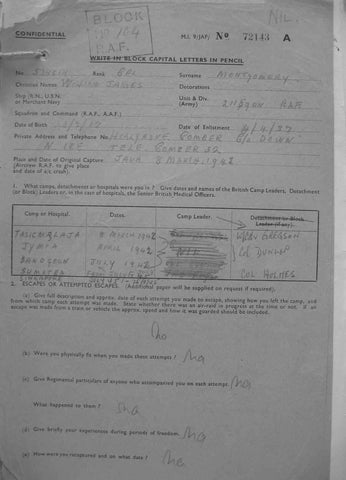 NIL.
BLOCK
104
R.A.F.
CONFIDENTIAL
M.I. 9/JAP/ No 72143 A
WRITE IN BLOCK CAPITAL LETTERS IN PENCIL
No. Rank CPL Surname MONTGOMERY
Christian Names WILLIAM JAMES Decorations
Ship (R.N., U.S.N. or Merchant Navy Unit & Div. (Army) 211 SQDN RAF
Squadron and Command (R.A.F., A.A.F.)
Date of Birth Date of Enlistment
Private Address and Telephone No. COMBER Co DOWN
N IRE TELE COMBER 32
Place and Date of Original Capture JAVA 8 MARCH 1942
(Aircrew R.A.F. to give place
and date of a/c crash)
1. What camps, detachments or hospitals were you in? Give dates and names of the British Camp Leaders, Detachment
(or Block) Leaders or, in the case of hospitals, the Senior British Medical Officers.
Camp or Hospital. Dates. Camp Leader. Detachment or Block Leader (if any).
TASICMALAJA 8 MARCH 1942 W/Cdr GREGSON
APRIL 1942 Col DUNLOP
BANDOENG JULY 1942
SUMATRA COL HOLMES
2. ESCAPES OR ATTEMPTED ESCAPES. (Additional paper will be supplied on request if required).
(a) Give full description and approx. date of each attempt you made to escape, showing how you left the camp, and
from which camp each attempt was made. State whether there was an air-raid in progress at the time or not. If an
escape was made from a train or vehicle the approx. speed and how it was guarded should be included.
No
(b) Were you physically fit when you made these attempts? Na
(c) Give Regimental particulars of anyone who accompanied you on each attempt. Na
What happened to them? Na
(d) Give briefly your experiences during periods of freedom. Na
(e) How were you recaptured and on what date? Na